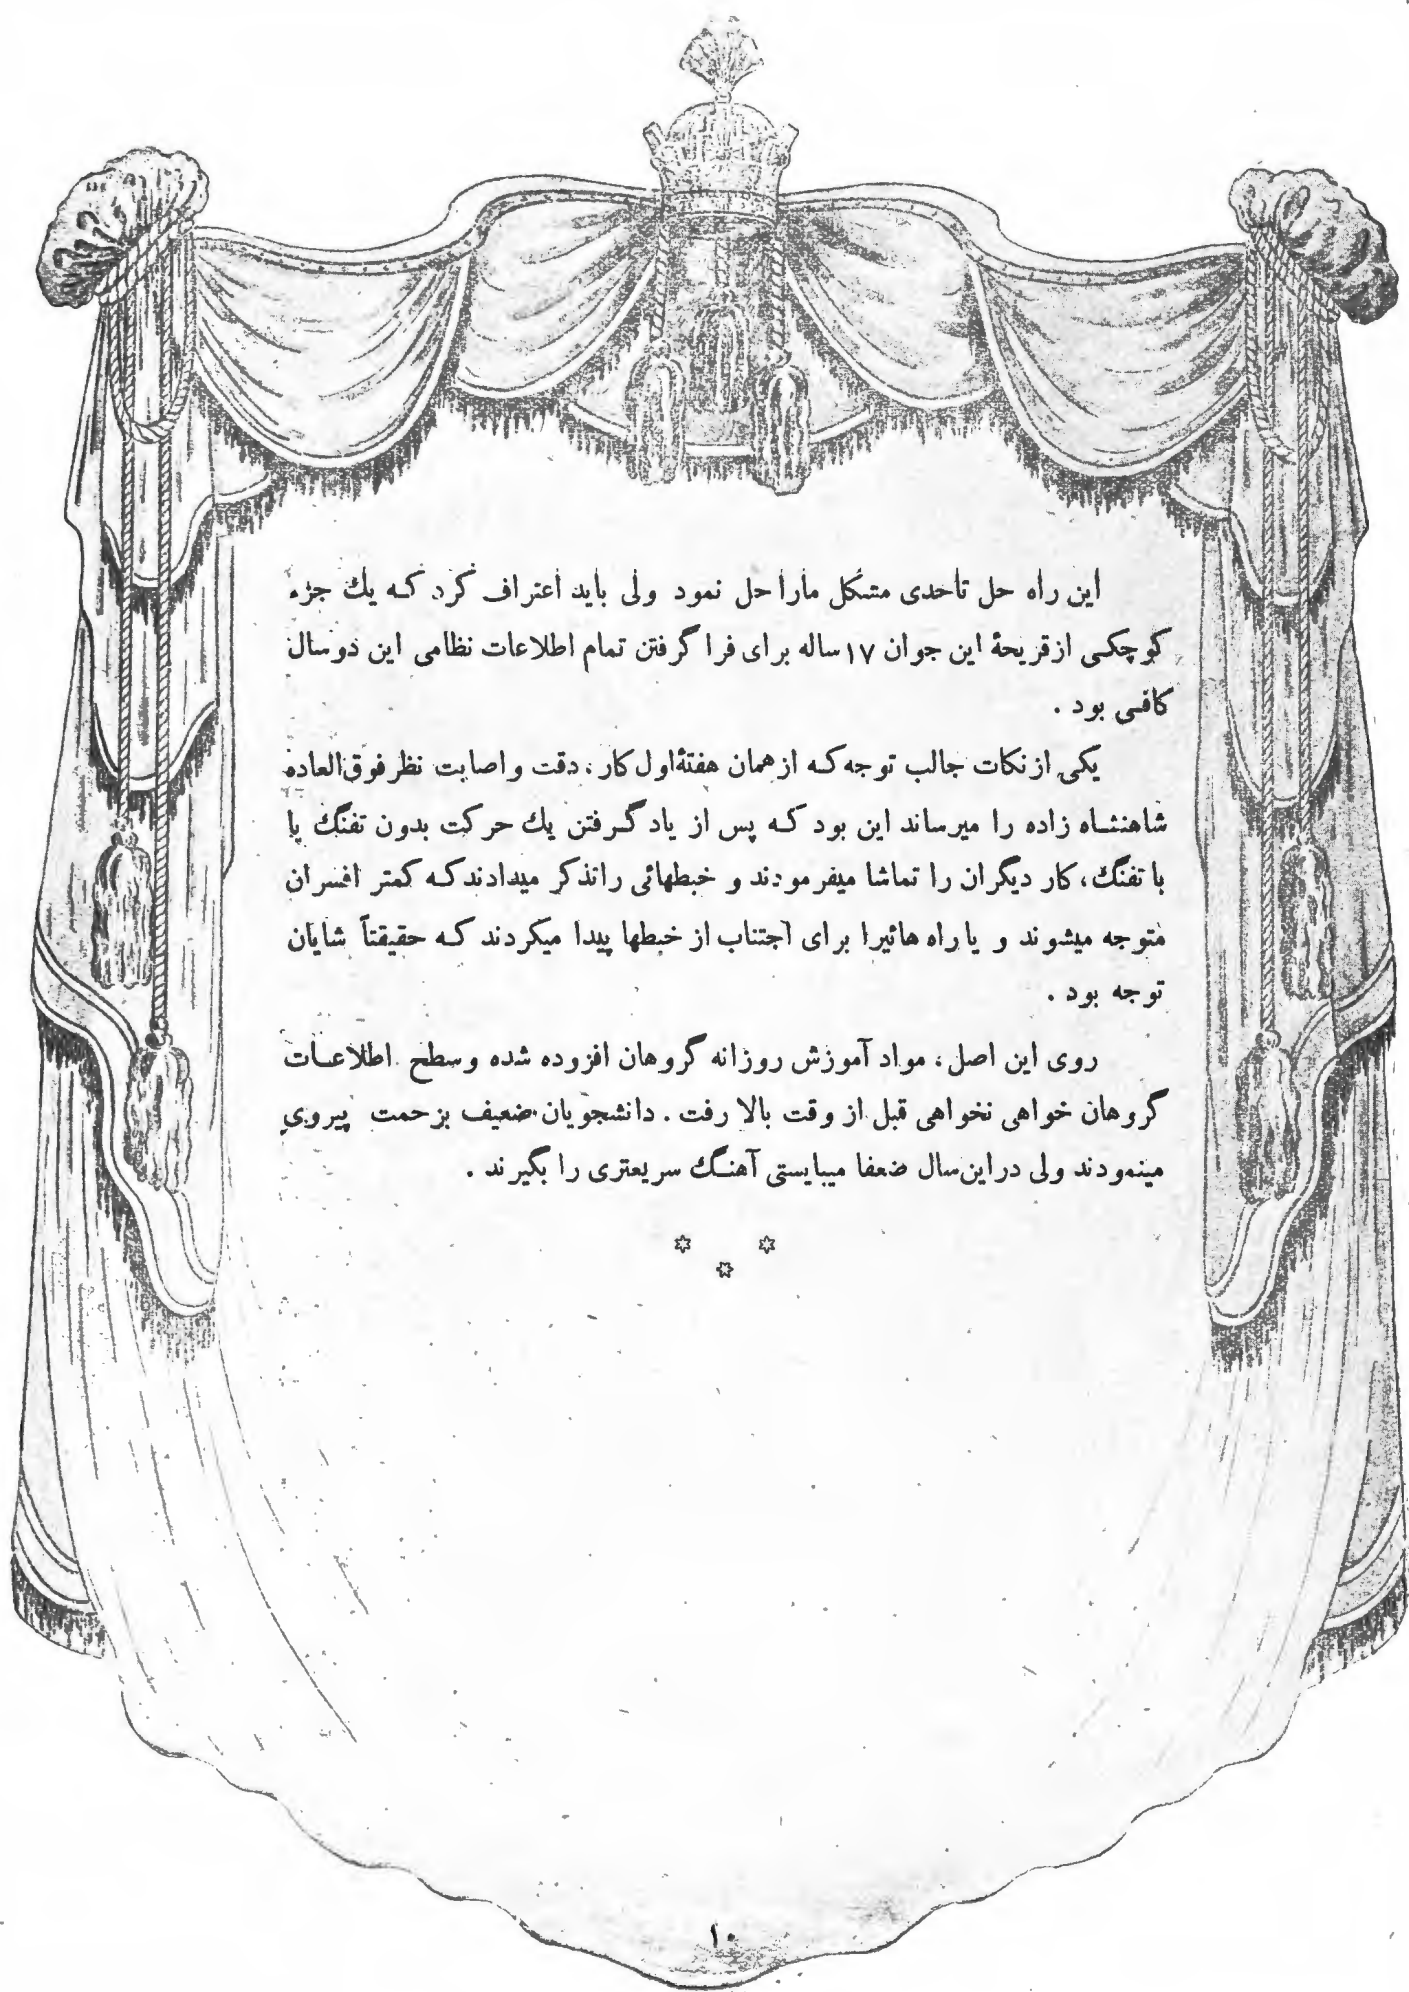 این راه حل تاحدی مشکل مارا حل نمود ولی باید اعتراف کرد که یك جزء
کوچکی ازقریحهٔ این جوان ۱۷ساله برای فرا گرفتن تمام اطلاعات نظامی این دوسال
کافی بود .
یکی ازنکات جالب توجه که ازهمان هفتهٔاول کار، دقت واصابت نظرفوق‌العاده
شاهنشاه زاده را میرساند این بود که پس از یاد گرفتن یك حرکت بدون تفنگ یا
با تفنگ، کار دیگران را تماشا میفرمودند و خبطهائی راتذکر میدادندکه کمتر افسران
متوجه میشوند و یا راه هائیرا برای اجتناب از خبطها پیدا میکردند که حقیقتاً شایان
توجه بود .
روی این اصل، مواد آموزش روزانه گروهان افزوده شده وسطح اطلاعات
گروهان خواهی نخواهی قبل از وقت بالا رفت . دانشجویان ضعیف بزحمت پیروی
مینمودند ولی دراین‌سال ضعفا میبایستی آهنگ سریعتری را بگیرند .
* * *
۱۰